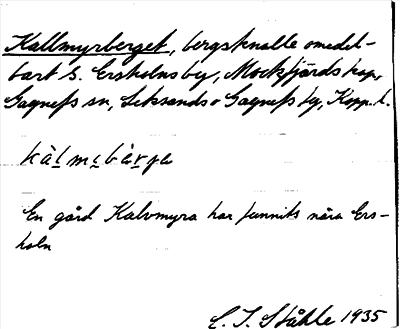 Kallmyrberget, bergsknalle omedel-
bart S. Ersholns by, Mockfjärds kap,
Gagnefs sn, Leksands o Gagnefs tg, Kopp. l.
En gård Kalvmyra har funnits nära Ers-
holn
C. I. Ståhle 1935